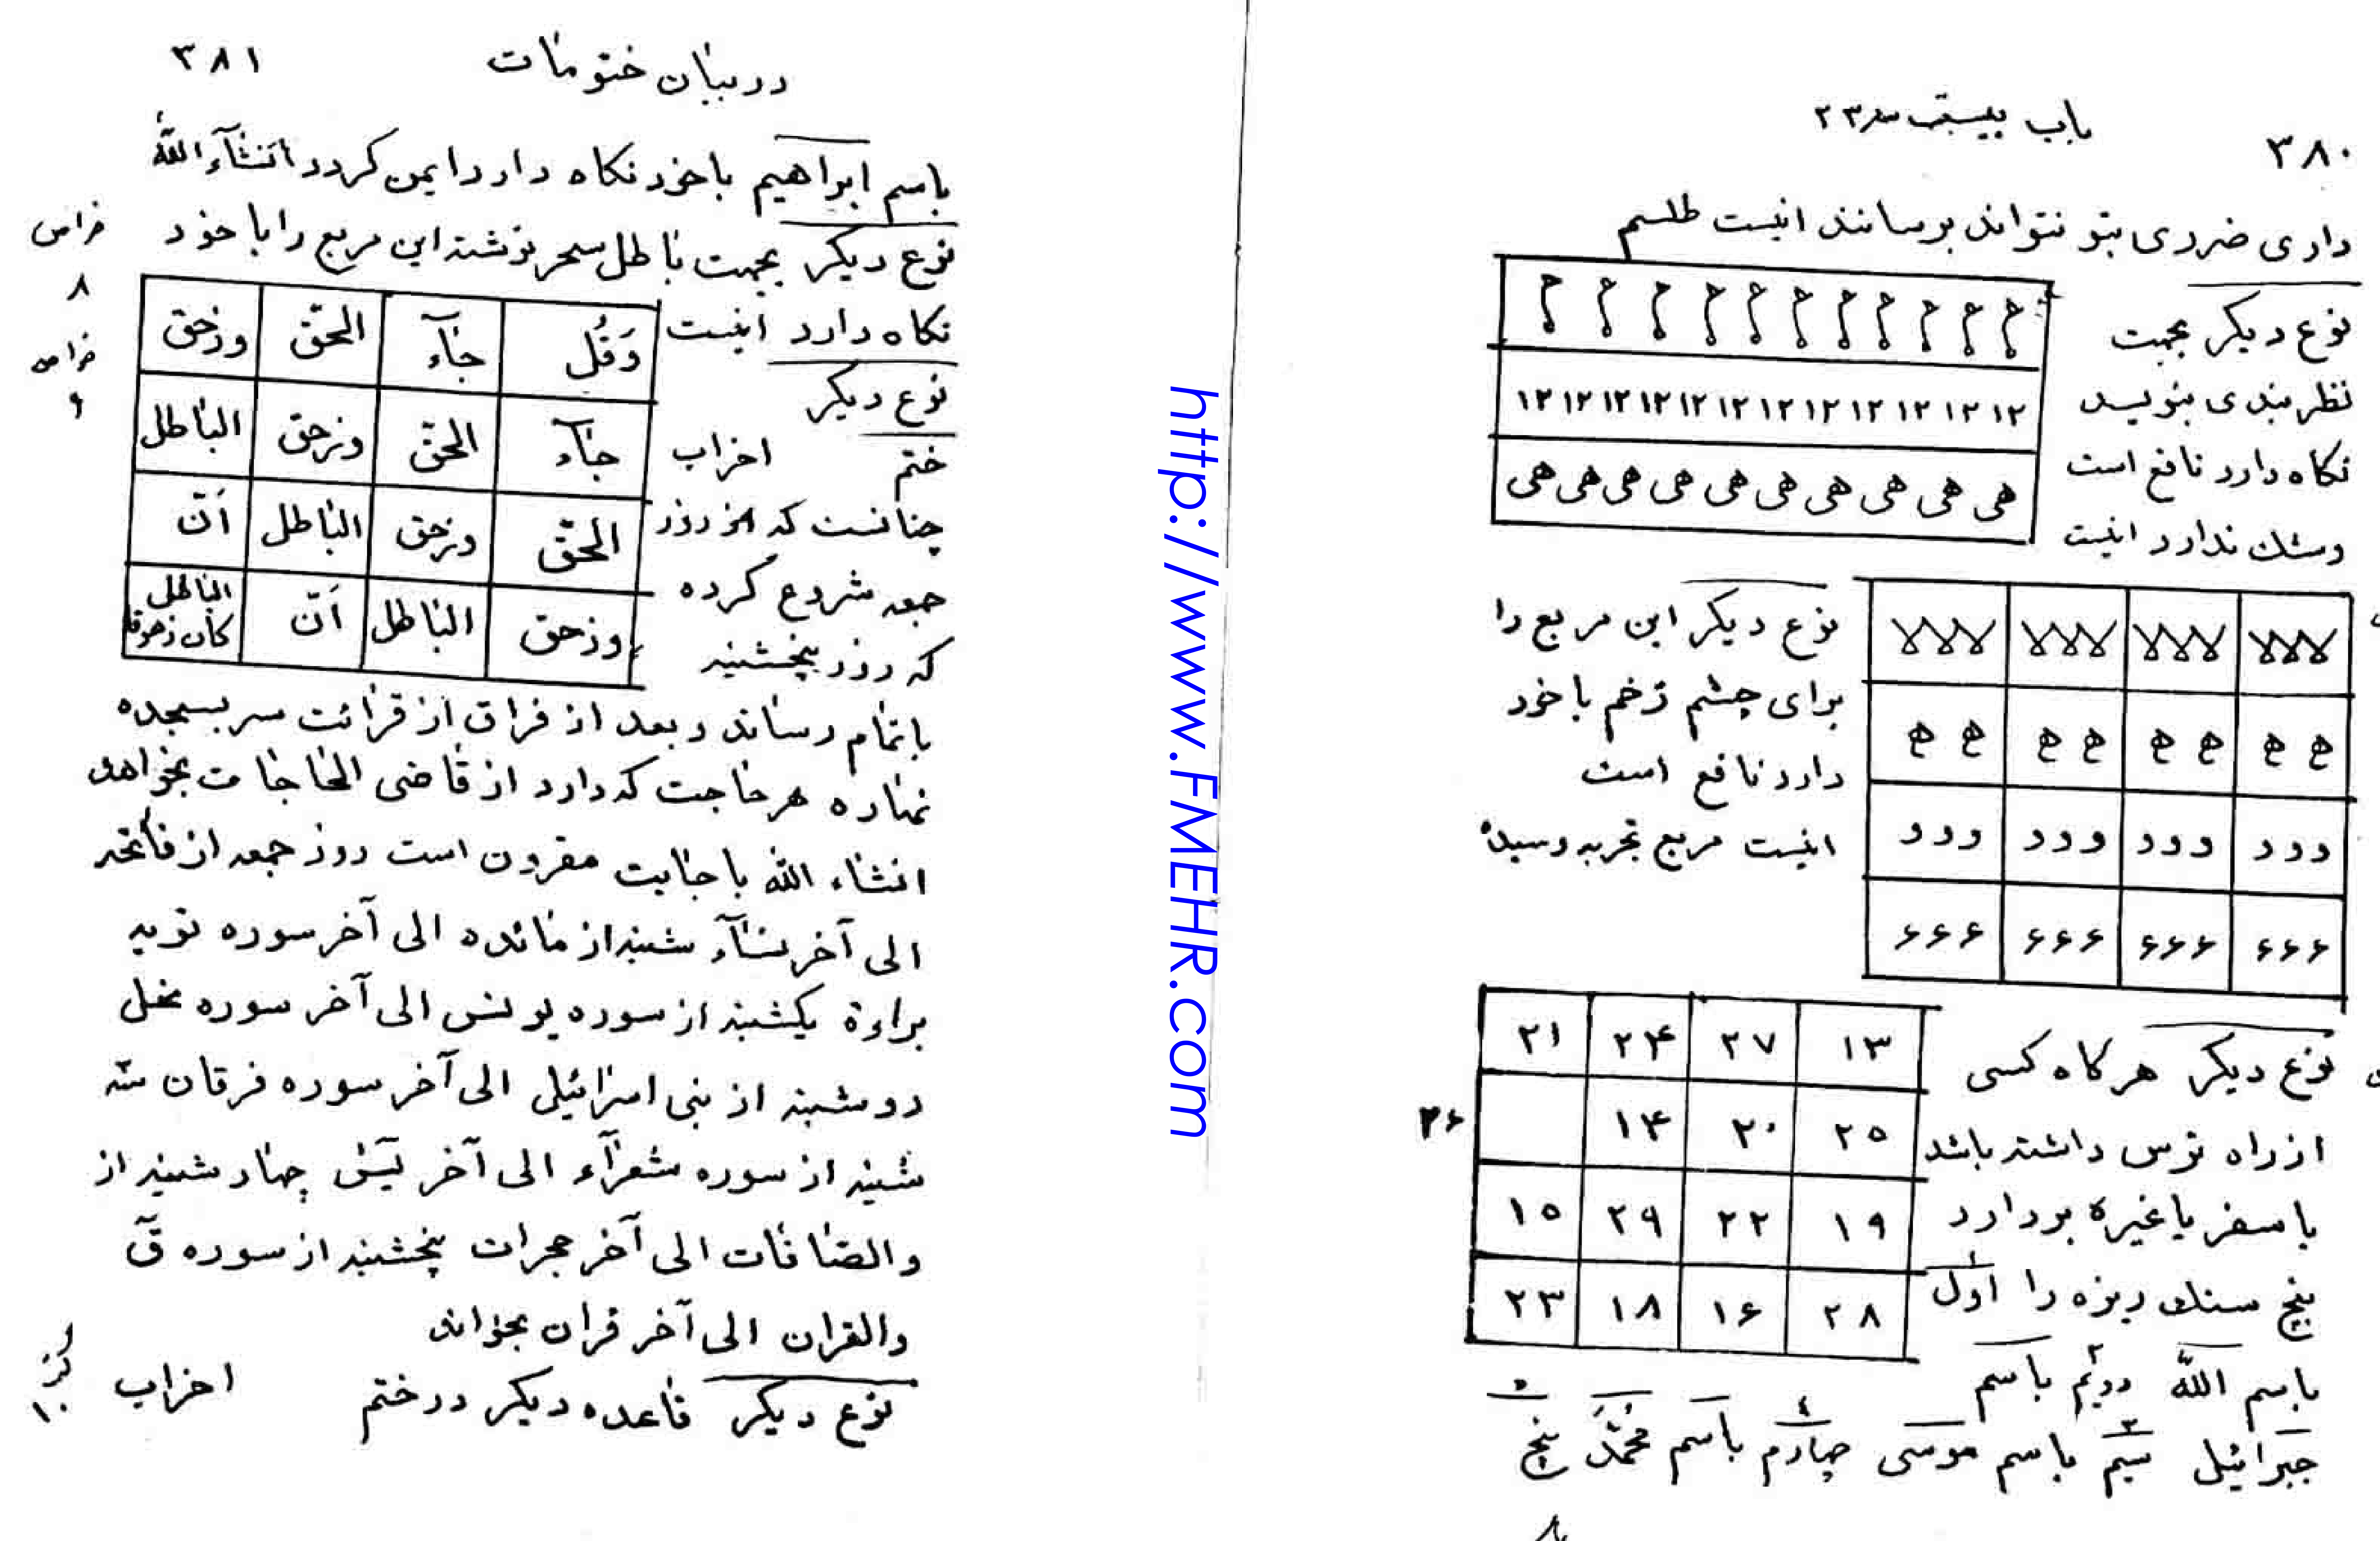 ۳۸۰
باب بیست سه ۲۳
داری ضرری بتو نتواند برسانند اینست طلسم
نوع دیکر بجهت
نظر بندی بنویسد
نکاه دارد نافع است
وشك ندارد اینست
۱۲ ۱۲ ۱۲ ۱۲ ۱۲ ۱۲ ۱۲ ۱۲ ۱۲ ۱۲ ۱۲ ۱۲
هی هی هی هی هی هی هی هی هی هی
نوع دیکر این مربع را
برای چشم زخم با خود
دارد نافع است
اینست مربع تجربه رسیده
لالالا لالالا لالالا لالالا
ھ ھ ھ ھ ھ ھ ھ ھ
و و و و و و و و و و و و
۶۶۶ ۶۶۶ ۶۶۶ ۶۶۶
نوع دیکر هرکاه کسی
از راه ترس داشته باشد
با سفر یا غیره بردارد
پنج سنك ریزه را اول
۱
باسم الله دویم باسم
۲
جبرائیل سیم باسم موسی چهارم باسم محمّد پنج
۳ ۴ ۵
۱۳ ۲۷ ۲۴ ۲۱
۲۵ ۲۰ ۱۴ ۲۶
۱۹ ۲۲ ۲۹ ۱۵
۲۸ ۱۶ ۱۸ ۲۳
http://www.FMEHR.com
در بیان ختومات
۳۸۱
باسم ابراهیم با خود نکاه دارد ایمن کردد انشآء اللّه
نوع دیکر بجهت باطل سحر نوشته این مربع را با خود
نکاه دارد اینست
نوع دیکر
ختم احزاب
چنانست که از روز
جمعه شروع کرده
که روز پنجشنبه
وَقُل جآء الحقّ وزحق
جآء الحقّ وزحق الباطل
الحقّ وزحق الباطل اَنّ
وزحق الباطل اَنّ الباطل کان زهوقا
باتمام رساند و بعد از فراق از قرائت سر بسجده
نهاده هر حاجت که دارد از قاضی الحاجات بخواهد
انشاء اللّه با جابت مقرون است روز جمعه از فاتحه
الی آخر نسآء شنبه از مائده الی آخر سوره توبه
براءة یکشنبه از سوره یونس الی آخر سوره نحل
دوشنبه از بنی اسرائیل الی آخر سوره فرقان سه
شنبه از سوره شعرآء الی آخر یس چهار شنبه از
والصافات الی آخر حجرات پنجشنبه از سوره قٓ
والقران الی آخر قران بخواند
نوع دیکر قاعده دیکر در ختم احزاب
خواص
۸
خواص
۹
۱۰